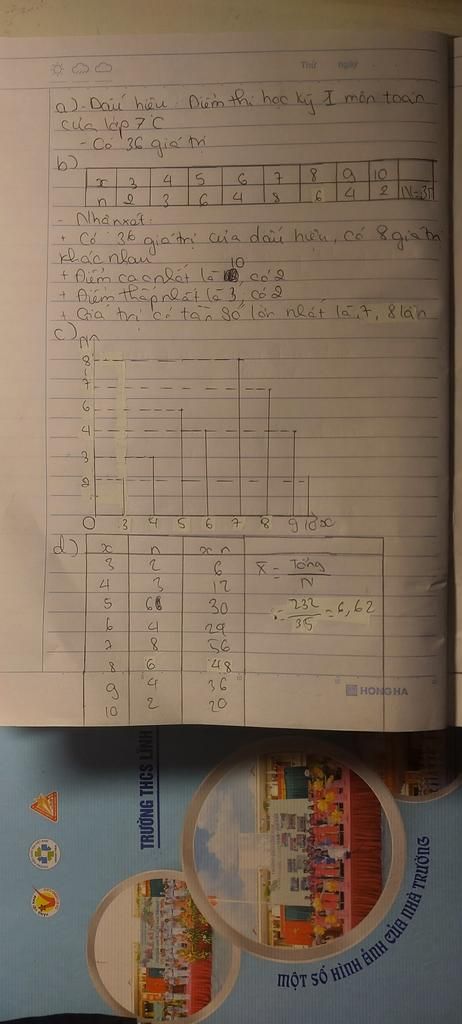 Thứ ngày
a) - Dấu hiệu: Điểm thi học kỳ I môn toán
của lớp 7C
- Có 36 giá trị
b)
x 3 4 5 6 7 8 9 10
n 2 3 6 4 8 6 4 2
- Nhận xét:
+ Có 36 giá trị của dấu hiệu, có 8 giá trị
khác nhau
+ Điểm cao nhất là 10, có 2
+ Điểm thấp nhất là 3, có 2
+ Giá trị có tần số lớn nhất là 7, 8 lần
c)
8
7
6
4
3
2
0 3 4 5 6 7 8 9 10 x
d) x n x n
3 2 6 X = Tổng / N
4 3 12
5 6 30 = 232 / 35 = 6,62
6 4 24
7 8 56
8 6 48
9 4 36
10 2 20
HONG HA
TRƯỜNG THCS LĨNH
MỘT SỐ HÌNH ẢNH CỦA NHÀ TRƯỜNG